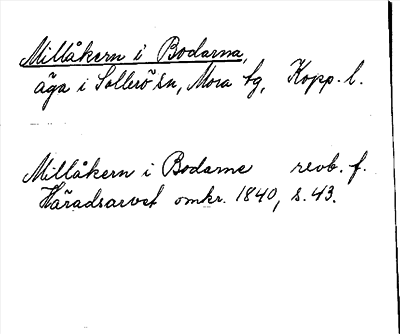 Millåkern i Bodarna,
äga i Sollerö sn, Mora tg, Kopp. l.
Millåkern i Bodarne revb. f.
Häradsarvet omkr. 1840, s. 43.